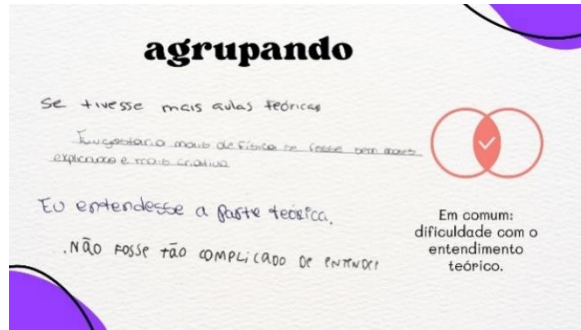 agrupando
Se tivesse mais aulas teóricas
Eu gostaria mais de Física se fosse bem mais
explicado e mais criativo
Eu entendesse a parte teórica.
.NÃO FOSSE tão COMPLICADO DE ENTENDER
Em comum:
dificuldade com o
entendimento
teórico.